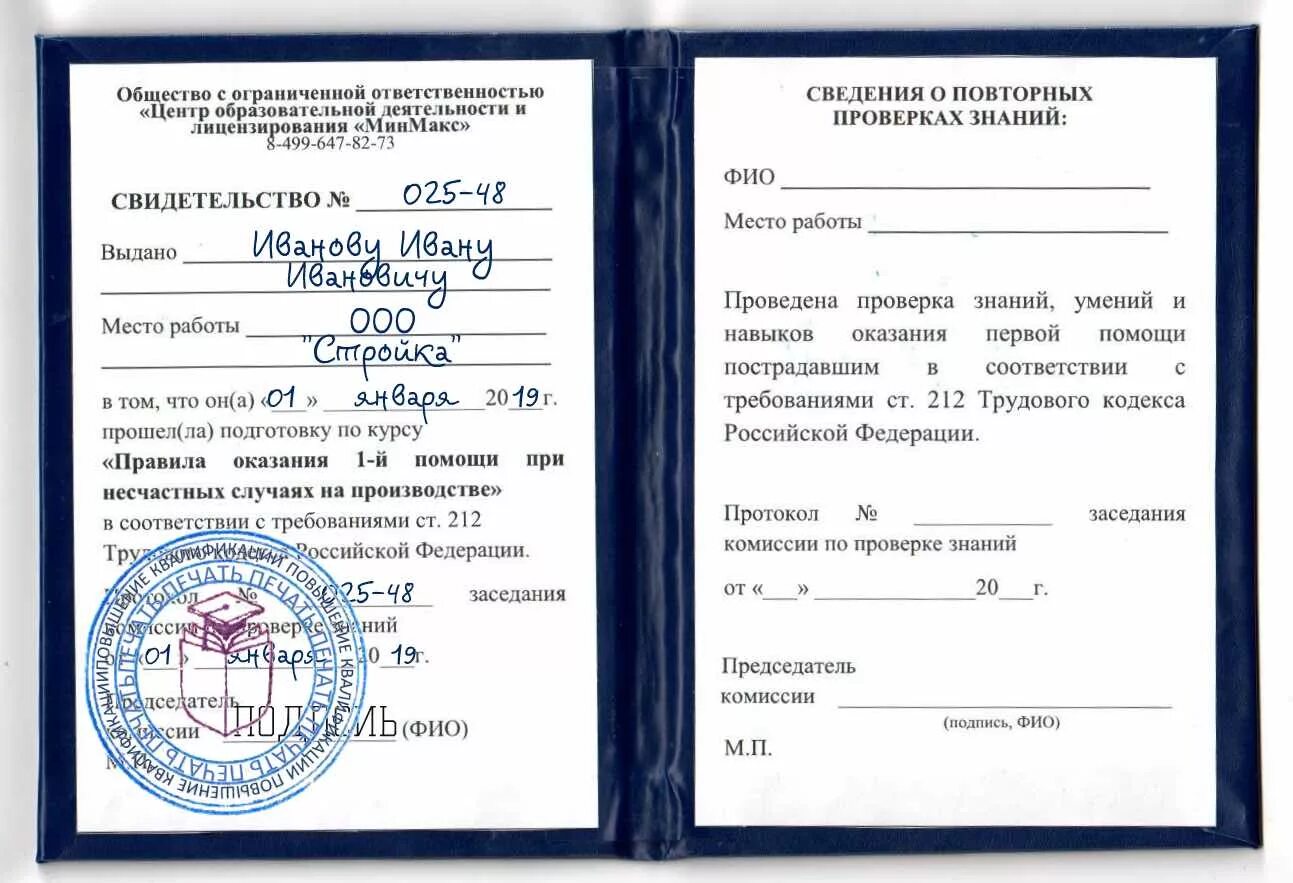 Общество с ограниченной ответственностью
«Центр образовательной деятельности и
лицензирования «МинМакс»
8-499-647-82-73
СВИДЕТЕЛЬСТВО № 025-48
Выдано Иванову Ивану
Ивановичу
Место работы ООО
"Стройка"
в том, что он(а) «01» января 2019г.
прошел(ла) подготовку по курсу
«Правила оказания 1-й помощи при
несчастных случаях на производстве»
в соответствии с требованиями ст. 212
Российской Федерации.
№ 025-48 заседания
«01» января 2019г.
Председатель
ПОДПИСЬ (ФИО)
ПОВЫШЕНИЕ КВАЛИФИКАЦИИ ПОВЫШЕНИЕ КВАЛИФИКАЦИИ ПОВЫШЕНИЕ КВАЛИФИКАЦИИ
ПЕЧАТЬ ПЕЧАТЬ ПЕЧАТЬ ПЕЧАТЬ ПЕЧАТЬ ПЕЧАТЬ
СВЕДЕНИЯ О ПОВТОРНЫХ
ПРОВЕРКАХ ЗНАНИЙ:
ФИО
Место работы
Проведена проверка знаний, умений и
навыков оказания первой помощи
пострадавшим в соответствии с
требованиями ст. 212 Трудового кодекса
Российской Федерации.
Протокол № заседания
комиссии по проверке знаний
от «___» 20___г.
Председатель
комиссии
(подпись, ФИО)
М.П.